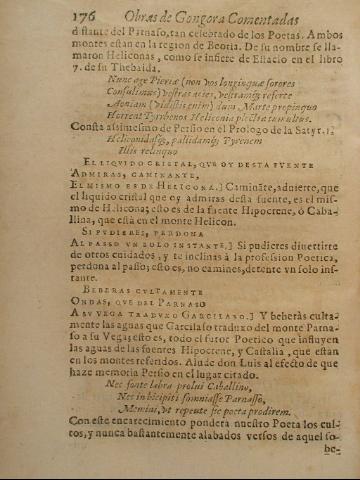 176 Obras de Gongora Comentadas
distante del Parnaso, tan celebrado de los Poetas. Ambos
montes estan en la region de Beoria. De su nombre se lla-
maron Heliconas, como se infiere de Estacio en el libro
7. de su Thebaida.
Nunc age Pieriæ (non vos longinquæ sorores
Consulimus) vestras acies, vestramq; referte
Aoniam (vidistis enim) dum Marte propinquo
Horrent Tyrrhenos Heliconia plectra tumultus.
Consta assimesmo de Persio en el Prologo de la Satyr. 1.
Heliconidasq;, pallidamq; Pyrenem
Illis relinquo
EL LIQUIDO CRISTAL, QUE OY DESTA FUENTE
ADMIRAS, CAMINANTE,
EL MISMO ES DE HELICONA.] Caminãte, aduierte, que
el liquido cristal que oy admiras desta fuente, es el mis-
mo de Helicona; esto es de la fuente Hipocrene, ò Caba-
llina, que està en el monte Helicon.
SI PUDIERES, PERDONA
AL PASSO UN SOLO INSTANTE.] Si pudieres diuertirte
de otros cuidados, y te inclinas à la profession Poetica,
perdona al passo; esto es, no camines, detente vn solo ins-
tante.
BEBERAS CULTAMENTE
ONDAS, QUE DEL PARNASO
A SU VEGA TRADUXO GARCILASO.] Y beberàs culta-
mente las aguas que Garcilaso traduxo del monte Parna-
so a su Vega; esto es, todo el furor Poetico que influyen
las aguas de las fuentes Hipocrene, y Castalia, que estàn
en los montes referidos. Alude don Luis al efecto de que
haze memoria Persio en el lugar citado.
Nec fonte labra prolui Caballino,
Nec in bicipiti somniasse Parnasso,
Memini, vt repente sic poeta prodirem.
Con este encarecimiento pondera nuestro Poeta los cul-
tos, y nunca bastantemente alabados versos de aquel so-
be-